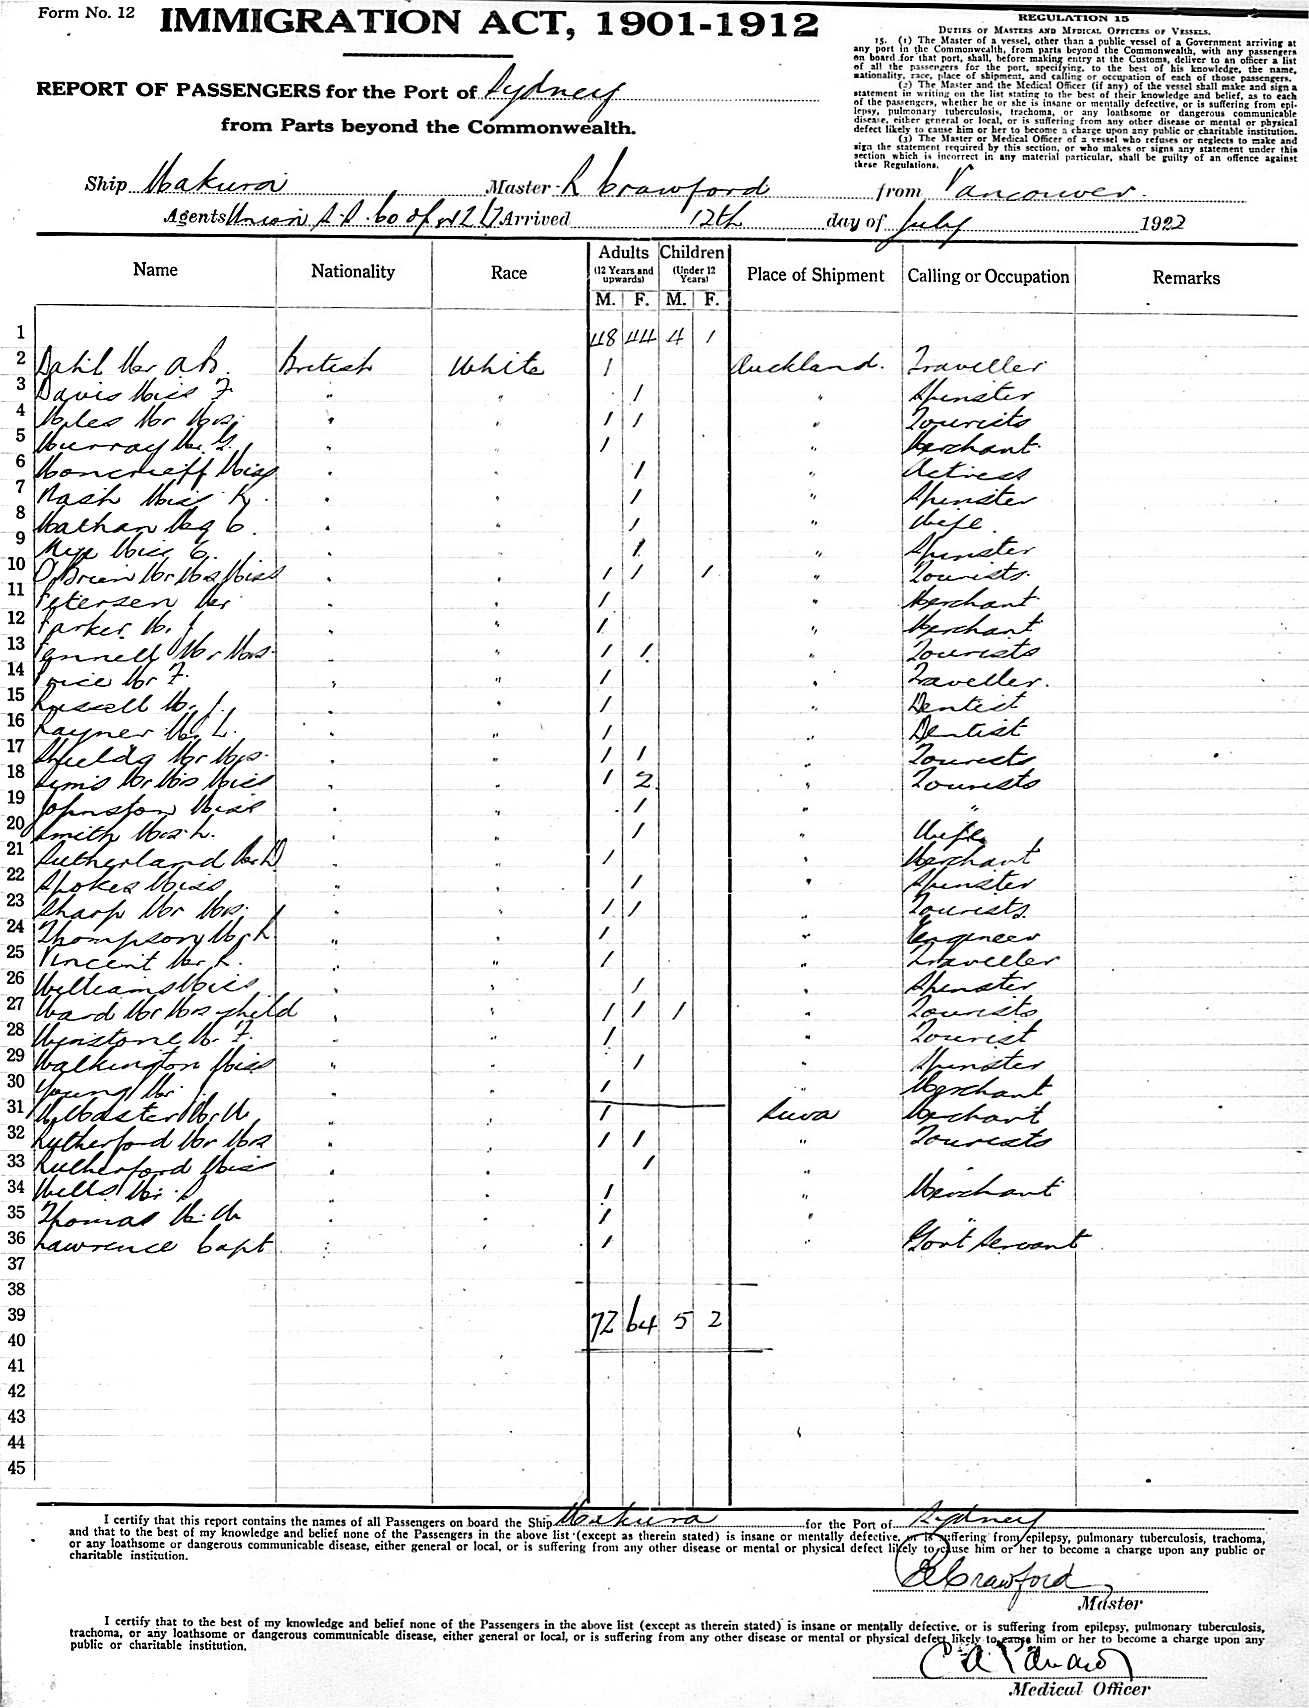 Form No. 12
IMMIGRATION ACT, 1901-1912
REPORT OF PASSENGERS for the Port of Sydney
from Parts beyond the Commonwealth.
REGULATION 15
DUTIES OF MASTERS AND MEDICAL OFFICERS OF VESSELS.
15. (1) The Master of a vessel, other than a public vessel of a Government arriving at
any port in the Commonwealth, from parts beyond the Commonwealth, with any passengers
on board for that port, shall, before making entry at the Customs, deliver to an officer a list
of all the passengers for the port, specifying, to the best of his knowledge, the name,
nationality, race, place of shipment, and calling or occupation of each of those passengers.
(2) The Master and the Medical Officer (if any) of the vessel shall make and sign a
statement in writing on the list stating to the best of their knowledge and belief, as to each
of the passengers, whether he or she is insane or mentally defective, or is suffering from epi-
lepsy, pulmonary tuberculosis, trachoma, or any loathsome or dangerous communicable
disease, either general or local, or is suffering from any other disease or mental or physical
defect likely to cause him or her to become a charge upon any public or charitable institution.
(3) The Master or Medical Officer of a vessel who refuses or neglects to make and
sign the statement required by this section, or who makes or signs any statement under this
section which is incorrect in any material particular, shall be guilty of an offence against
these Regulations.
Ship Makura Master R Crawford from Vancouver.
Agents Union S.S. Co of NZ Ld Arrived 12th day of July 1922
Name Nationality Race Adults (12 Years and upwards) Children (Under 12 Years) Place of Shipment Calling or Occupation Remarks
M. F. M. F.
1 48 44 4 1
2 Dahl Mr A.B. British White 1 Auckland. Traveller
3 Davis Miss F. " " 1 " Spinster
4 Miles Mr Mrs. " " 1 1 " Tourists
5 Murray Mr. G. " " 1 " Merchant.
6 Moncrieff Miss " " 1 " Actress
7 Nash Miss K. " " 1 " Spinster
8 Nathan Mrs C. " " 1 " Wife.
9 Miss C. " " 1 " Spinster
10 O'Brien Mr Mrs Miss " " 1 1 1 " Tourists.
11 Petersen Mr " " 1 " Merchant
12 Parker Mr. J " " 1 " Merchant
13 Pennell Mr Mrs. " " 1 1 " Tourists
14 Price Mr F. " " 1 " Traveller.
15 Russell Mr. J. " " 1 " Dentist
16 Rayner Mr. L. " " 1 " Dentist
17 Shields Mr Mrs. " " 1 1 " Tourists
18 Sims Mr Mrs Miss " " 1 2 " Tourists
19 Johnston Miss " " 1 " "
20 Smith Mrs L. " " 1 " Wife
21 Sutherland Mr D " " 1 " Merchant
22 Spokes Miss " " 1 " Spinster
23 Sharp Mr Mrs. " " 1 1 " Tourists.
24 Thompson Mr L. " " 1 " Engineer
25 Vincent Mr L. " " 1 " Traveller
26 Williams Miss " " 1 " Spinster
27 Ward Mr Mrs child " " 1 1 1 " Tourists
28 Winstone Mr. F. " " 1 " Tourist
29 Walkington Miss " " 1 " Spinster
30 Young Mr J. " " 1 " Merchant
31 McMaster Mr. W " " 1 Suva Merchant
32 Rutherford Mr Mrs " " 1 1 " Tourists
33 Rutherford Miss " " 1 "
34 Wells Mr. " " 1 " Merchant
35 Thomas Mr. W " " 1 "
36 Lawrence Capt " " 1 " Govt Servant
37
38
39 72 64 5 2
40
41
42
43
44
45
I certify that this report contains the names of all Passengers on board the Ship Makura for the Port of Sydney
and that to the best of my knowledge and belief none of the Passengers in the above list (except as therein stated) is insane or mentally defective, or is suffering from epilepsy, pulmonary tuberculosis, trachoma,
or any loathsome or dangerous communicable disease, either general or local, or is suffering from any other disease or mental or physical defect likely to cause him or her to become a charge upon any public or
charitable institution.
R Crawford
Master
I certify that to the best of my knowledge and belief none of the Passengers in the above list (except as therein stated) is insane or mentally defective, or is suffering from epilepsy, pulmonary tuberculosis,
trachoma, or any loathsome or dangerous communicable disease, either general or local, or is suffering from any other disease or mental or physical defect likely to cause him or her to become a charge upon any
public or charitable institution.
Medical Officer